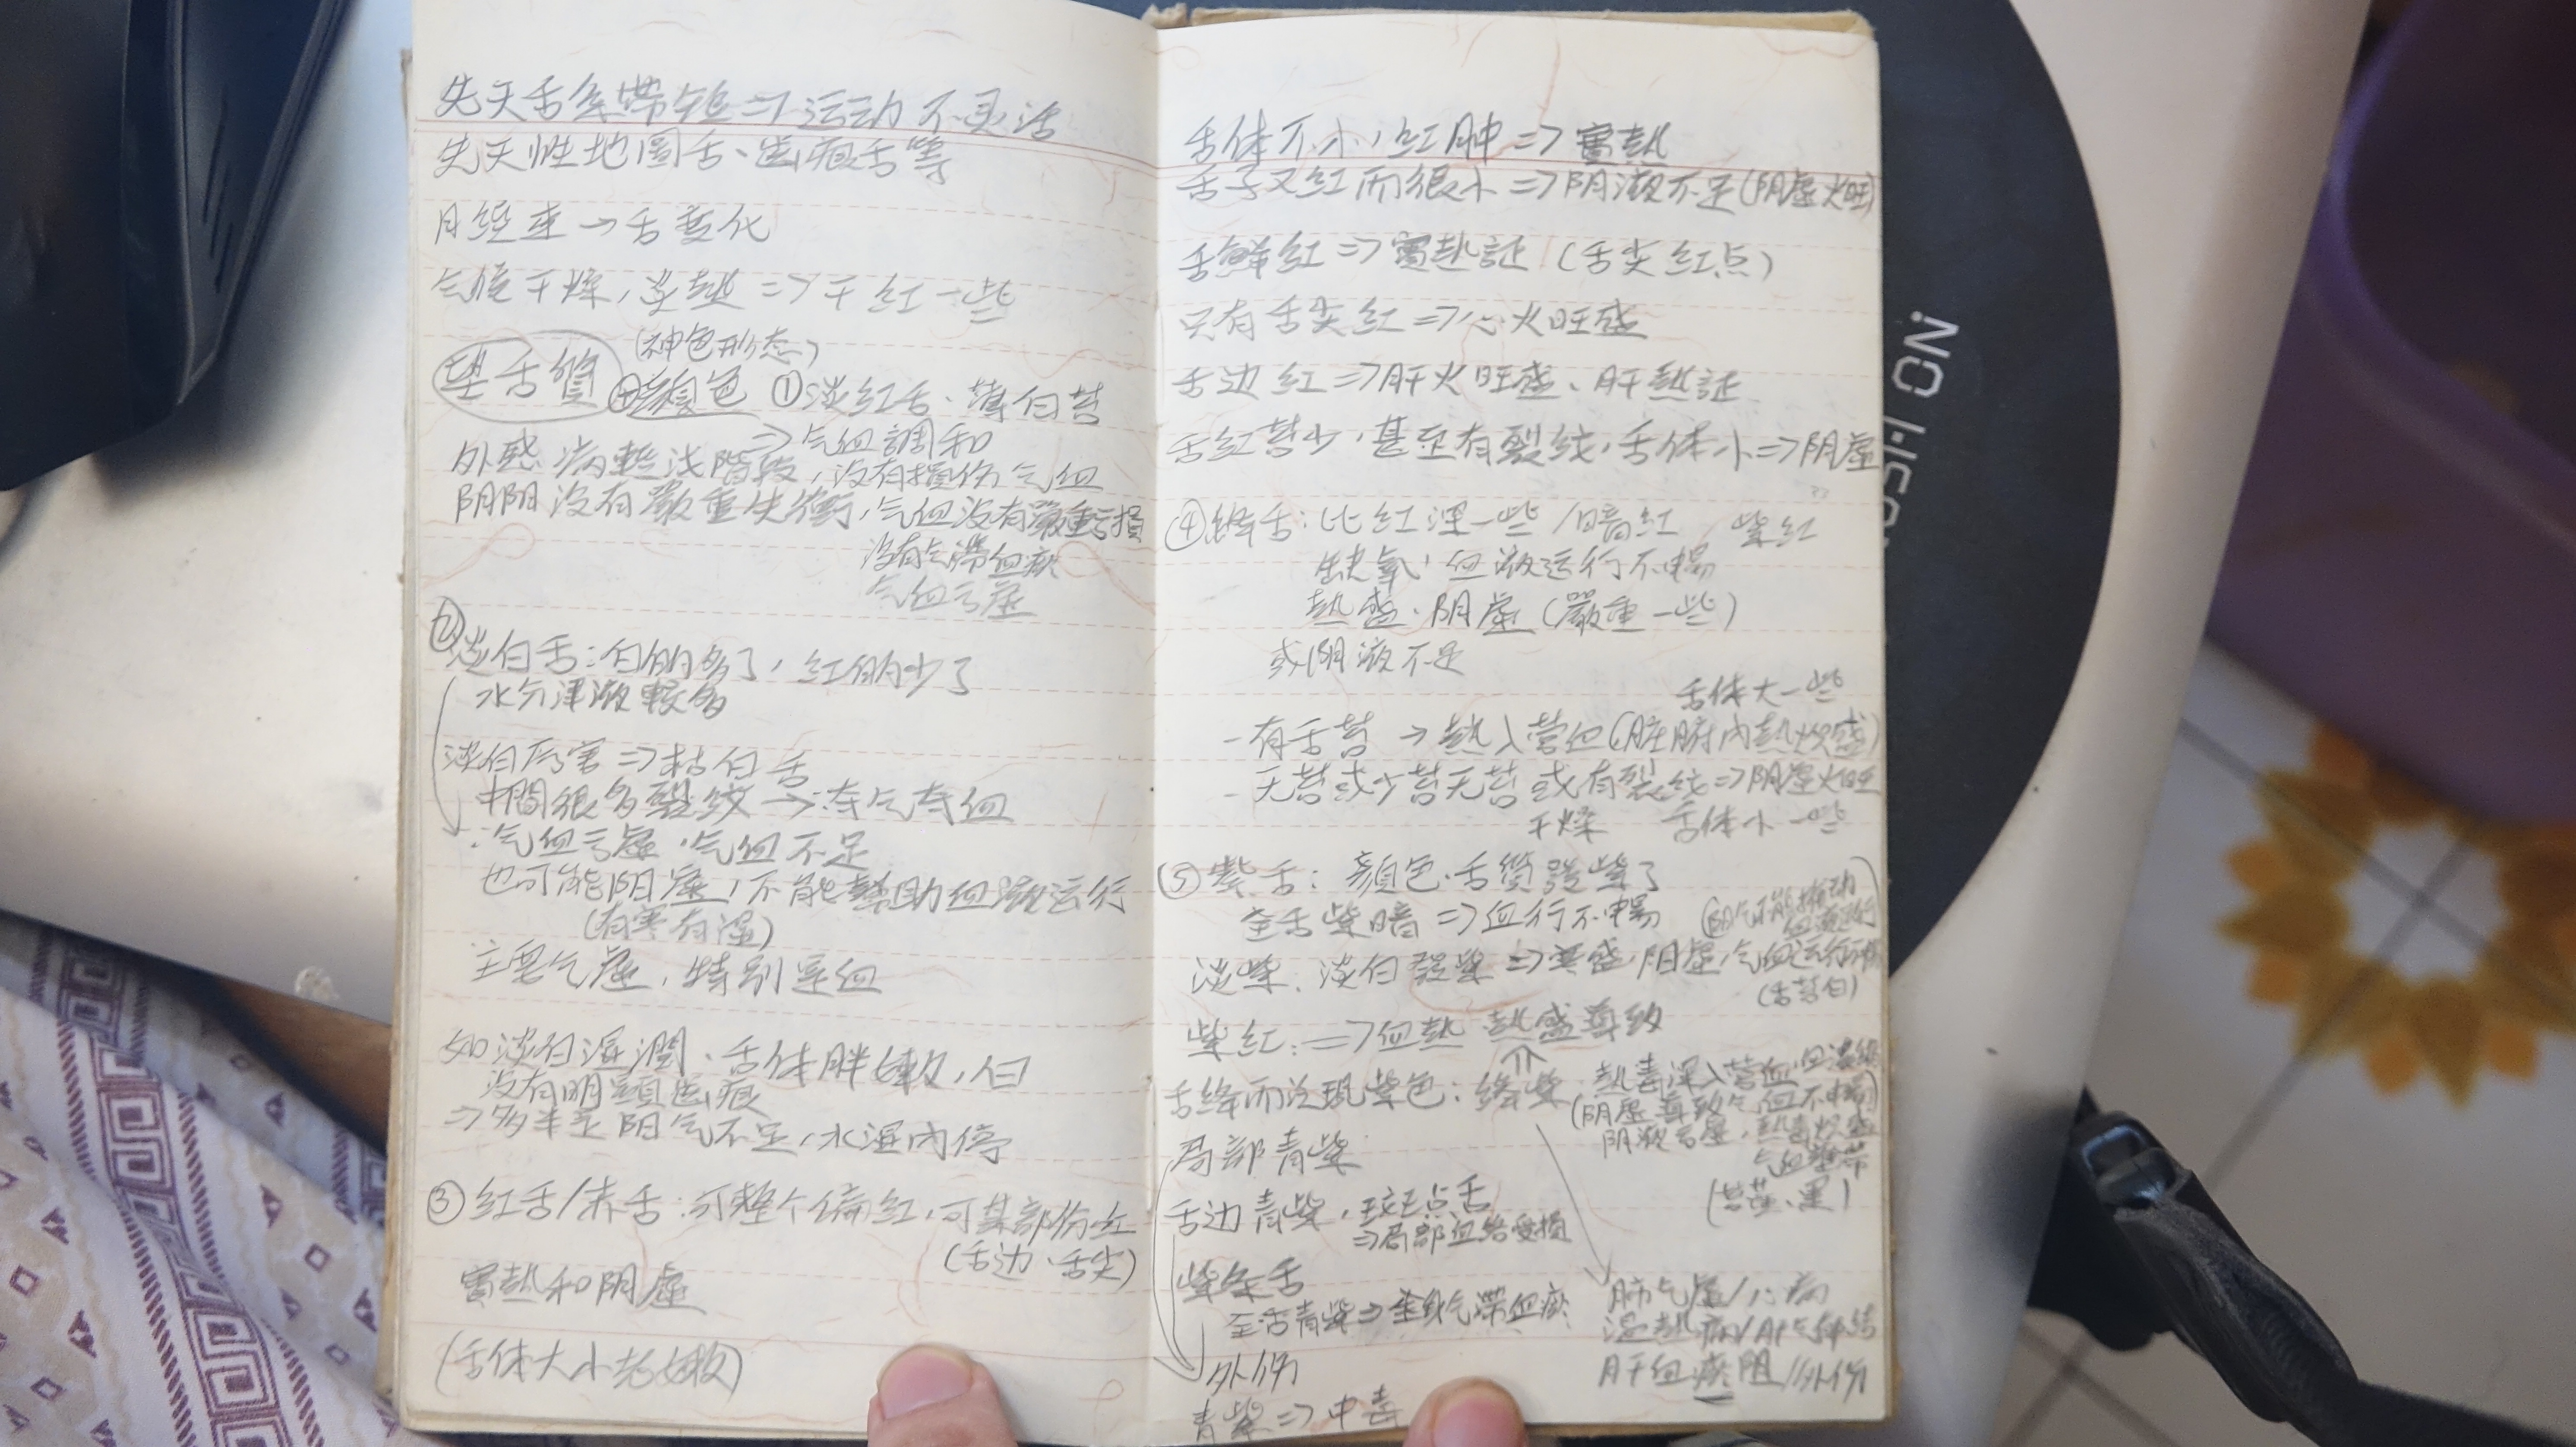 先天舌系带短⇒运动不灵活
先天性地圖舌、齿痕舌等
月经来→舌变化
气候干燥,炎熱⇒干红一些
(神色形态)
望舌質 ⊕顏色 ①淡红舌、薄白苔
⇒气血調和
外感病較浅階段,没有損伤气血
阴阳没有嚴重失衡,气血没有嚴重亏損
没有气滞血瘀
气血亏虛
②
淡白舌:白的多了,红的少了
水分津液較多
淡白厉害⇒枯白舌
中間很多裂紋→夺气夺血
:气血亏虛,气血不足
也可能阳虛,不能幫助血液运行
(有寒有濕)
主要气虛,特别是血
如淡白濕潤、舌体胖嫩,白
没有明顯齿痕
⇒多半是阳气不足,水濕内停
③红舌/赤舌:可整个偏红,可某部份红
(舌边、舌尖)
實熱和阴虛
(舌体大小老嫩)
舌体不小,红肿⇒實熱
舌子又红而很小⇒阴液不足(阴虛火旺)
舌鲜红⇒實熱証(舌尖红点)
只有舌尖红⇒心火旺盛
舌边红⇒肝火旺盛、肝熱証
舌红苔少,甚至有裂纹,舌体小⇒阴虛
④絳舌:比红深一些/暗红 紫红
缺氧,血液运行不暢
熱盛、阴虛(嚴重一些)
或阴液不足
舌体大一些
-有舌苔→熱入营血(脏腑内熱炽盛)
-无苔或少苔无苔或有裂纹⇒阴虛火旺
干燥 舌体小一些
⑤紫舌:顏色、舌質發紫了
全舌紫暗⇒血行不暢 (阳气不能推动
血液运行
淡紫、淡白發紫⇒寒盛,阳虛,气血运行不暢
(舌苔白)
紫红:⇒血熱 熱盛導致
舌絳而兑現紫色:絳紫 熱毒深入营血,血液
(阴虛導致气血不暢)
阴液亏虛,熱毒炽盛
气血壅滞
(苔黃、黑)
局部青紫
舌边青紫,斑点舌
⇒局部血络受損
紫条舌
全舌青紫⇒全身气滞血瘀
外伤
青紫⇒中毒
肺气虛/心病
濕熱病/肝气郁结
肝血瘀阻/外伤
NO